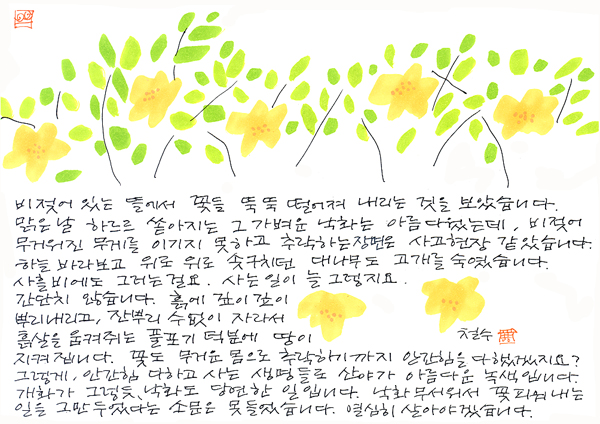 비젖어 있는 뜰에서 꽃들 뚝뚝 떨어져 내리는 것을 보았습니다.
맑은날 하르르 쏟아지는 그 가벼운 낙화는 아름다웠는데, 비젖어
무거워진 무게를 이기지 못하고 추락하는장면은 사고현장 같았습니다.
하늘 바라보고 위로 위로 솟구치던 대나무도 고개를 숙였습니다.
사흘비에도 그러는걸요. 사는일이 늘 그렇지요.
간단치 않습니다. 흙에 깊이깊이
뿌리내리고, 잔뿌리 수없이 자라서
흙살을 움켜주는 풀포기 덕분에 땅이
지켜집니다. 꽃도 무거운 몸으로 추락하기까지 안간힘을 다했겠지요?
그렇게, 안간힘 다하고 사는 생명들로 산야가 아름다운 녹색입니다.
개화가 그렇듯, 낙화도 당연한 일입니다. 낙화 무서워서 꽃피워내는
일을 그만두었다는 소문은 못들었습니다. 열심히 살아야겠습니다.
철수